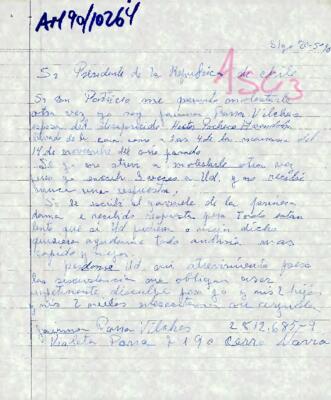 AH 90/10264
Sr Presidente de la Republica de chile
ASC3
Sr Don Patricio me permito molestarlo
otra vez yo soy Parra Vilches
esposa del desaparecido Hector Pacheco
de mi casa a las 4 de la mañana del
19 de noviembre del año pasado
Si yo me atrevo a molestarlo otra vez
pero ya escribi 3 veces a Ud, y no recibi
nunca una respuesta.
Si le escribi al a de la primera
dama e recibido respuesta pero todo es tan
lento que si Ud pusiera o mejor dicho
quisiera ayudarme todo andaria mas
rapido y mejor.
perdone Ud mi atrevimiento pero
las circunstancias me obligan a ser
impertinente, disculpe pero yo y mis 2 hijos
y mis 2 nietos necesitamos su ayuda
Parra Vilches 2.812.685-9
Violeta Parra J 190 Cerro Navia